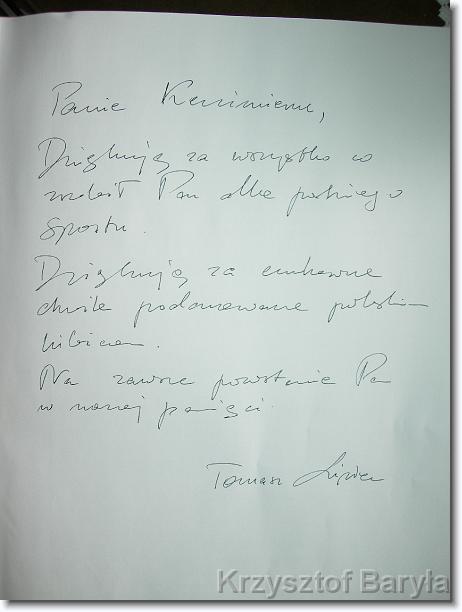 Panie Kazimierzu,
Dziękuję za wszystko co
zrobił Pan dla polskiego
sportu.
Dziękuję za cudowne
chwile podarowane polskim
kibicom.
Na zawsze pozostanie Pan
w naszej pamięci.
Tomasz Lipiec
Krzysztof Baryła